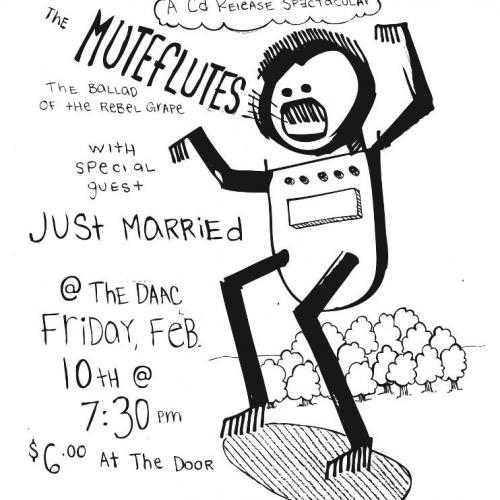 A Cd Release Spectacular
The
MUTEFLUTES
The Ballad
of the Rebel Grape
with
special
guest
Just Married
@ The DAAC
Friday, Feb.
10th @
7:30 pm
$6.00 At The Door